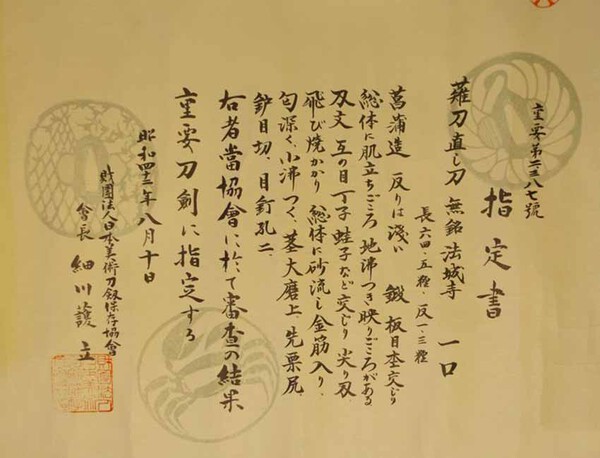 重要第二三八七號
指定書
薙刀直し刀 無銘 法城寺 一口
長六四·五糎·反一·三糎
菖蒲造 反りは淺い 鍛 板目杢交じり
総体に肌立ちごころ 地沸つき 映りごころがある
刄文 互の目丁子 蛙子など交じり 尖り刄
飛び焼かかり 総体に砂流し金筋入り
匂深く 小沸つく 茎大磨上 先栗尻
鈩目切 目釘孔二
右者當協會に於て審査の結果
重要刀劍に指定する
昭和四十三年八月十日
財團法人日本美術刀剣保存協會
會長 細川護立